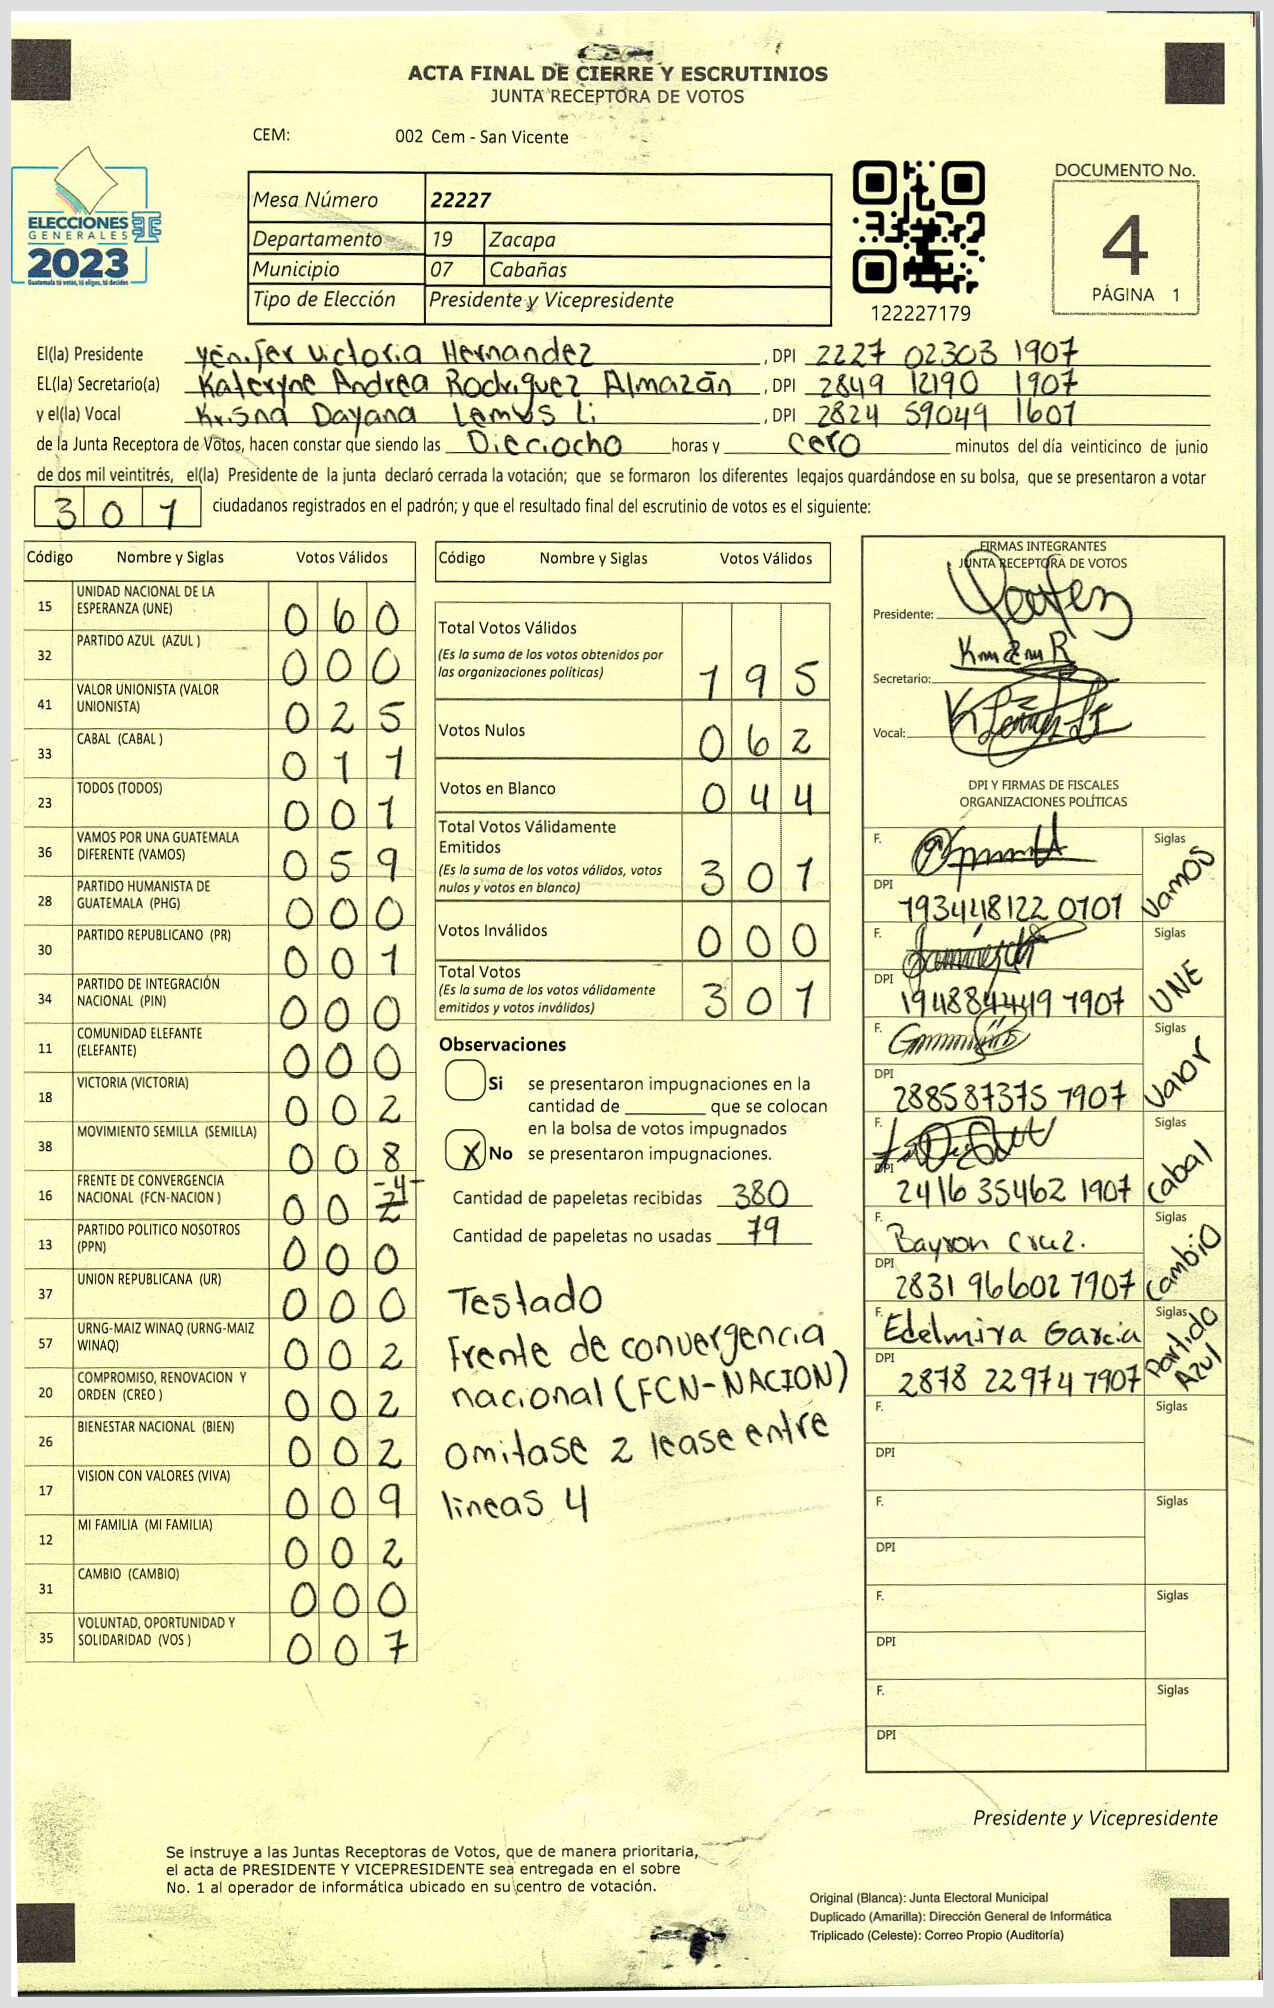 ACTA FINAL DE CIERRE Y ESCRUTINIOS
JUNTA RECEPTORA DE VOTOS
CEM: 002 Cem - San Vicente
ELECCIONES
GENERALES
2023
Guatemala tú votas, tú eliges, tú decides
Mesa Número 22227
Departamento 19 Zacapa
Municipio 07 Cabañas
Tipo de Elección Presidente y Vicepresidente
122227179
DOCUMENTO No.
4
PÁGINA 1
El(la) Presidente Yenifer Victoria Hernandez , DPI 2227 02303 1907
EL(la) Secretario(a) Kateryne Andrea Rodriguez Almazán , DPI 2849 12190 1907
y el(la) Vocal Krisna Dayana Lemus Li , DPI 2824 59049 1601
de la Junta Receptora de Votos, hacen constar que siendo las Dieciocho horas y cero minutos del día veinticinco de junio
de dos mil veintitrés, el(la) Presidente de la junta declaró cerrada la votación; que se formaron los diferentes legajos guardándose en su bolsa, que se presentaron a votar
301 ciudadanos registrados en el padrón; y que el resultado final del escrutinio de votos es el siguiente:
Código Nombre y Siglas Votos Válidos
15 UNIDAD NACIONAL DE LA
ESPERANZA (UNE) 060
32 PARTIDO AZUL (AZUL ) 000
41 VALOR UNIONISTA (VALOR
UNIONISTA) 025
33 CABAL (CABAL ) 011
23 TODOS (TODOS) 001
36 VAMOS POR UNA GUATEMALA
DIFERENTE (VAMOS) 059
28 PARTIDO HUMANISTA DE
GUATEMALA (PHG) 000
30 PARTIDO REPUBLICANO (PR) 001
34 PARTIDO DE INTEGRACIÓN
NACIONAL (PIN) 000
11 COMUNIDAD ELEFANTE
(ELEFANTE) 000
18 VICTORIA (VICTORIA) 002
38 MOVIMIENTO SEMILLA (SEMILLA) 008
16 FRENTE DE CONVERGENCIA
NACIONAL (FCN-NACION ) 002 -4-
13 PARTIDO POLITICO NOSOTROS
(PPN) 000
37 UNION REPUBLICANA (UR) 000
57 URNG-MAIZ WINAQ (URNG-MAIZ
WINAQ) 002
20 COMPROMISO, RENOVACION Y
ORDEN (CREO ) 002
26 BIENESTAR NACIONAL (BIEN) 002
17 VISION CON VALORES (VIVA) 009
12 MI FAMILIA (MI FAMILIA) 002
31 CAMBIO (CAMBIO) 000
35 VOLUNTAD, OPORTUNIDAD Y
SOLIDARIDAD (VOS ) 007
Código Nombre y Siglas Votos Válidos
Total Votos Válidos
(Es la suma de los votos obtenidos por
las organizaciones políticas) 195
Votos Nulos 062
Votos en Blanco 044
Total Votos Válidamente
Emitidos
(Es la suma de los votos válidos, votos
nulos y votos en blanco) 301
Votos Inválidos 000
Total Votos
(Es la suma de los votos válidamente
emitidos y votos inválidos) 301
Observaciones
Si se presentaron impugnaciones en la
cantidad de ________ que se colocan
en la bolsa de votos impugnados
X No se presentaron impugnaciones.
Cantidad de papeletas recibidas 380
Cantidad de papeletas no usadas 79
Testado
Frente de convergencia
nacional (FCN-NACION)
omitase 2 lease entre
lineas 4
FIRMAS INTEGRANTES
JUNTA RECEPTORA DE VOTOS
Presidente:
Secretario:
Vocal:
DPI Y FIRMAS DE FISCALES
ORGANIZACIONES POLÍTICAS
F. Siglas Vamos
DPI 193448122 0101
F. Siglas UNE
DPI 194884449 1907
F. Siglas Valor
DPI 288587375 1907
F. Siglas Cabal
DPI 2416 35462 1907
F. Bayron Cruz. Siglas Cambio
DPI 2831 96602 1907
F. Edelmira Garcia Siglas Partido Azul
DPI 2878 22974 1907
F. Siglas
DPI
F. Siglas
DPI
F. Siglas
DPI
F. Siglas
DPI
Presidente y Vicepresidente
Se instruye a las Juntas Receptoras de Votos, que de manera prioritaria,
el acta de PRESIDENTE Y VICEPRESIDENTE sea entregada en el sobre
No. 1 al operador de informática ubicado en su centro de votación.
Original (Blanca): Junta Electoral Municipal
Duplicado (Amarilla): Dirección General de Informática
Triplicado (Celeste): Correo Propio (Auditoría)